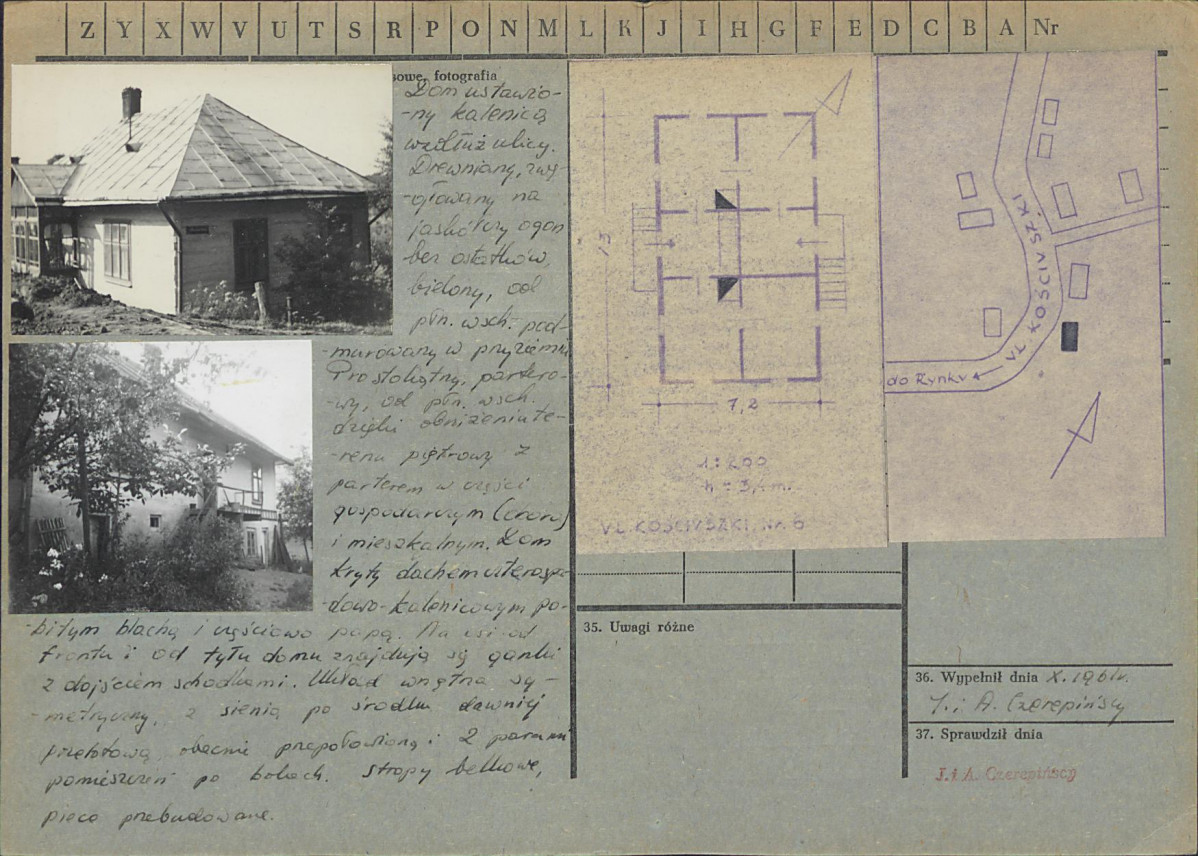 Z Y X W V U T S R P O N M L K J I H G F E D C B A Nr
sowe, fotografia
Dom ustawio-
-ny kalenicą
wzdłuż ulicy.
Drewniany, zwę-
-głowany na
jaskółczy ogon
bez ostatków,
bielony, od
płn. wsch. pod-
-murowany w przyziemiu
Prostokątny, partero-
-wy, od płn. wsch.
dzięki obniżeniu te-
-renu piętrowy z
parterem w części
gospodarczym
i mieszkalnym. Dom
kryty dachem czterospa-
-dowo-kalenicowym po-
-bitym blachą i częściowo papą. Na osi od
frontu i od tyłu domu znajdują się ganki
z dojściem schodkami. Układ wnętrza sy-
-metryczny, z sienią po środku dawniej
przelotową, obecnie przepołowioną i 2 parami
pomieszczeń po bokach. Stropy belkowe,
piece przebudowane.
13
7,2
1:200
h = m.
UL. KOŚCIUSZKI, Nr. 6
UL. KOŚCIUSZKI
do Rynku
35. Uwagi różne
36. Wypełnił dnia X. 1961r.
J. i A. Czerepińscy
37. Sprawdził dnia
J. i A. Czerepińscy